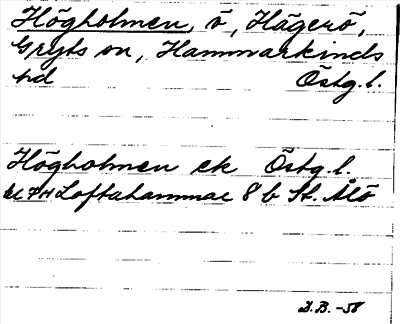 Högholmen, ö, Hägerö,
Gryts sn, Hammarkinds
hd Östg.l.
Högholmen ek Östg.l.
Loftahammar 8 b St. Ålö
D.B. -58